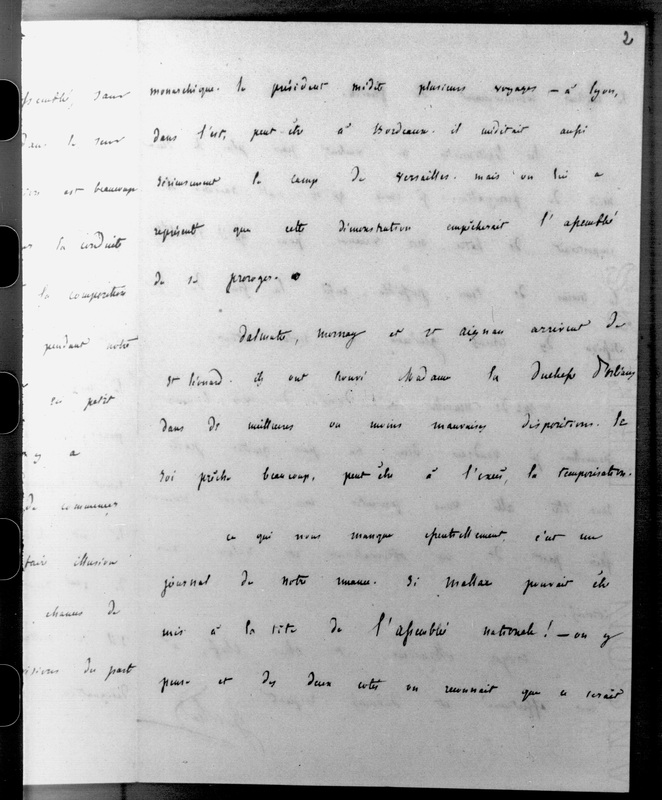 2
monarchique. le président médite plusieurs voyages — à lyon,
dans l'est, peut-être à Bordeaux. il méditait aussi
sérieusement le camp de versailles. mais on lui a
représenté que cette démonstration empêcherait l'assemblée
de se proroger.
Dalmatie, mornay et st aignan arrivent de
st léonard. ils ont trouvé Madame la duchesse d'orléans
dans de meilleures ou moins mauvaises dispositions. le
roi prêche beaucoup, peut-être à l'excès, la temporisation.
ce qui nous manque essentiellement c'est un
journal de notre nuance. si Mallac pouvait être
mis à la tête de l'assemblée nationale! — on y
pense et des deux cotés on reconnait que ce serait
assemblée, sans
dans le sens
est beaucoup
la conduite
la composition
pendant notre
en petit
y a
de commencer
faire illusion
chances de
du parti